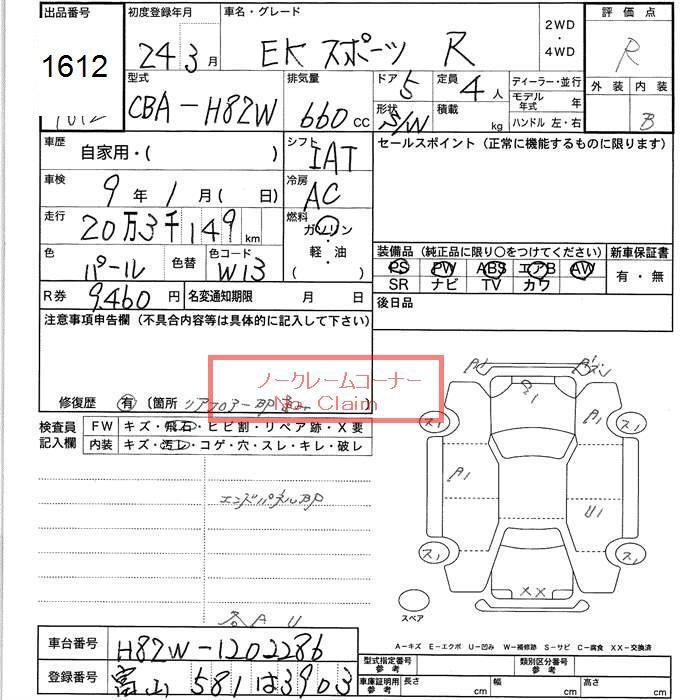 出品番号 初度登録年月 車名・グレード 2WD・4WD 評価点
1612 24 3月 EK スポーツ R R
型式 排気量 ドア 5 定員 4人 ディーラー・並行 外装 内装
CBA-H82W 660cc 形状 S/W 積載 kg モデル年式 年 B
ハンドル 左・右
車歴 自家用・( ) シフト IAT セールスポイント (正常に機能するものに限ります)
車検 9年1月(日) 冷房 AC
走行 20万3千149km 燃料 ガソリン・軽・油 ( )
色 パール 色替 色コード W13
装備品 (純正品に限り○をつけてください) 新車保証書
PS PW ABS エアB AW 有・無
SR ナビ TV カワ
R券 9,460円 名変通知期限 月 日 後日品
注意事項申告欄 (不具合内容等は具体的に記入して下さい)
ノークレームコーナー
No. Claim
修復歴 有 〔箇所 リアフロアー
検査員記入欄 FW キズ・飛石・ヒビ割・リペア跡・X要
内装 キズ・汚レ・コゲ・穴・スレ・キレ・破レ
エンドパネルBP
各A U
A1 A1 U1 XX
ス1 ス1 ス1 ス1
スペア
A-キズ E-エクボ U-凹み W-補修跡 S-サビ C-腐食 XX-交換済
車台番号 H82W-1202286 型式指定番号 参考 類別区分番号 参考
登録番号 富山 581 は 3903 車庫証明用 参考 長さ cm 幅 cm 高さ cm